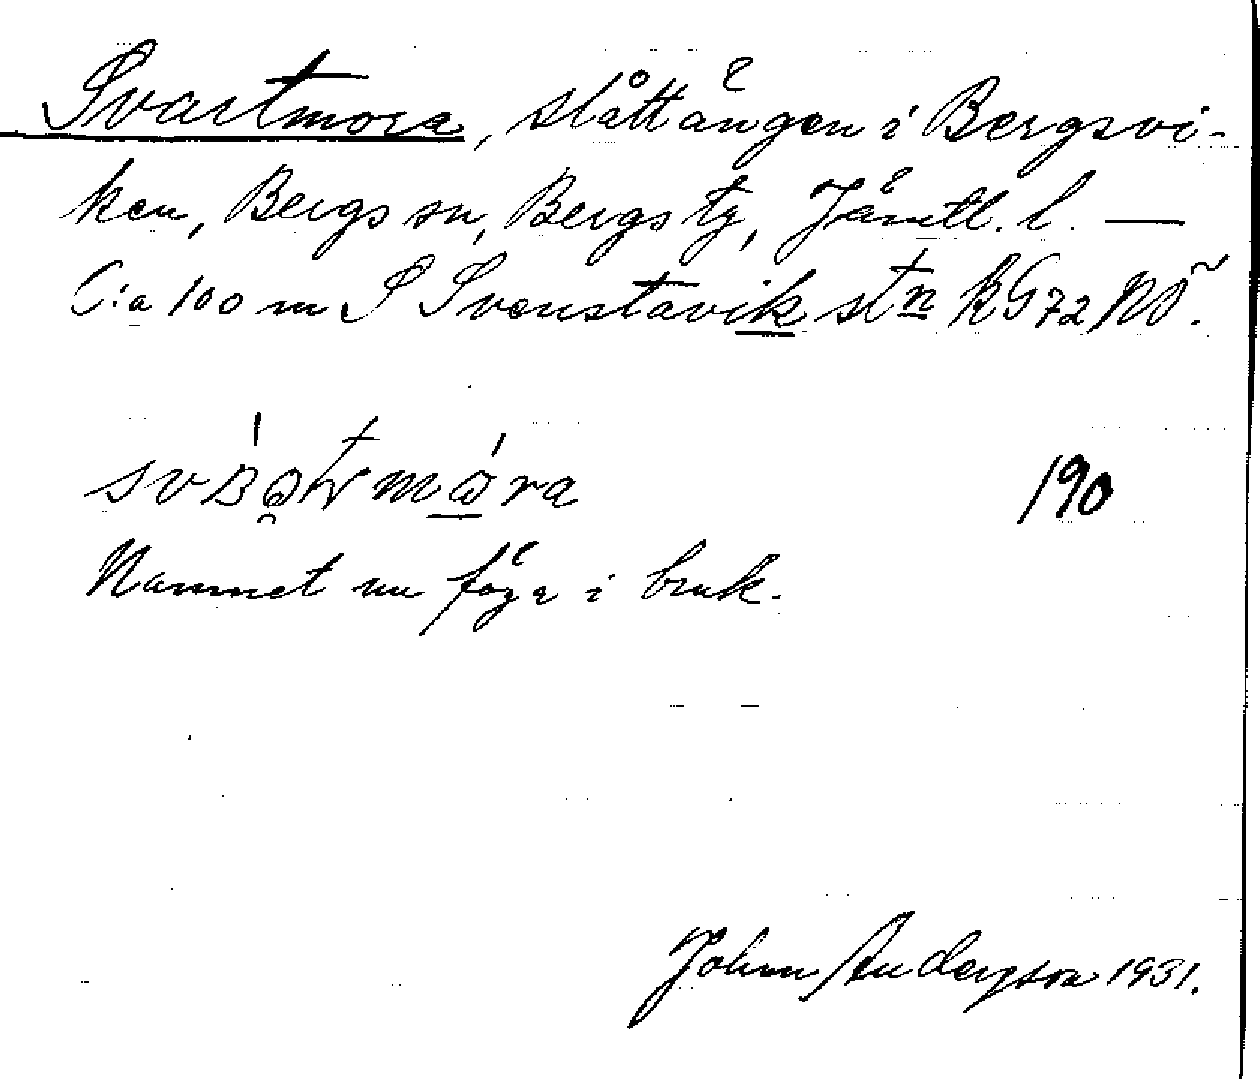 Svartmora, slåttängen i Bergsvi-
ken, Bergs sn, Bergs tg, Jämtl. l. —
C:a 100 m S Svenstavik stn KG72NÖ.
190
Namnet nu föga i bruk.
John Anderson 1931.